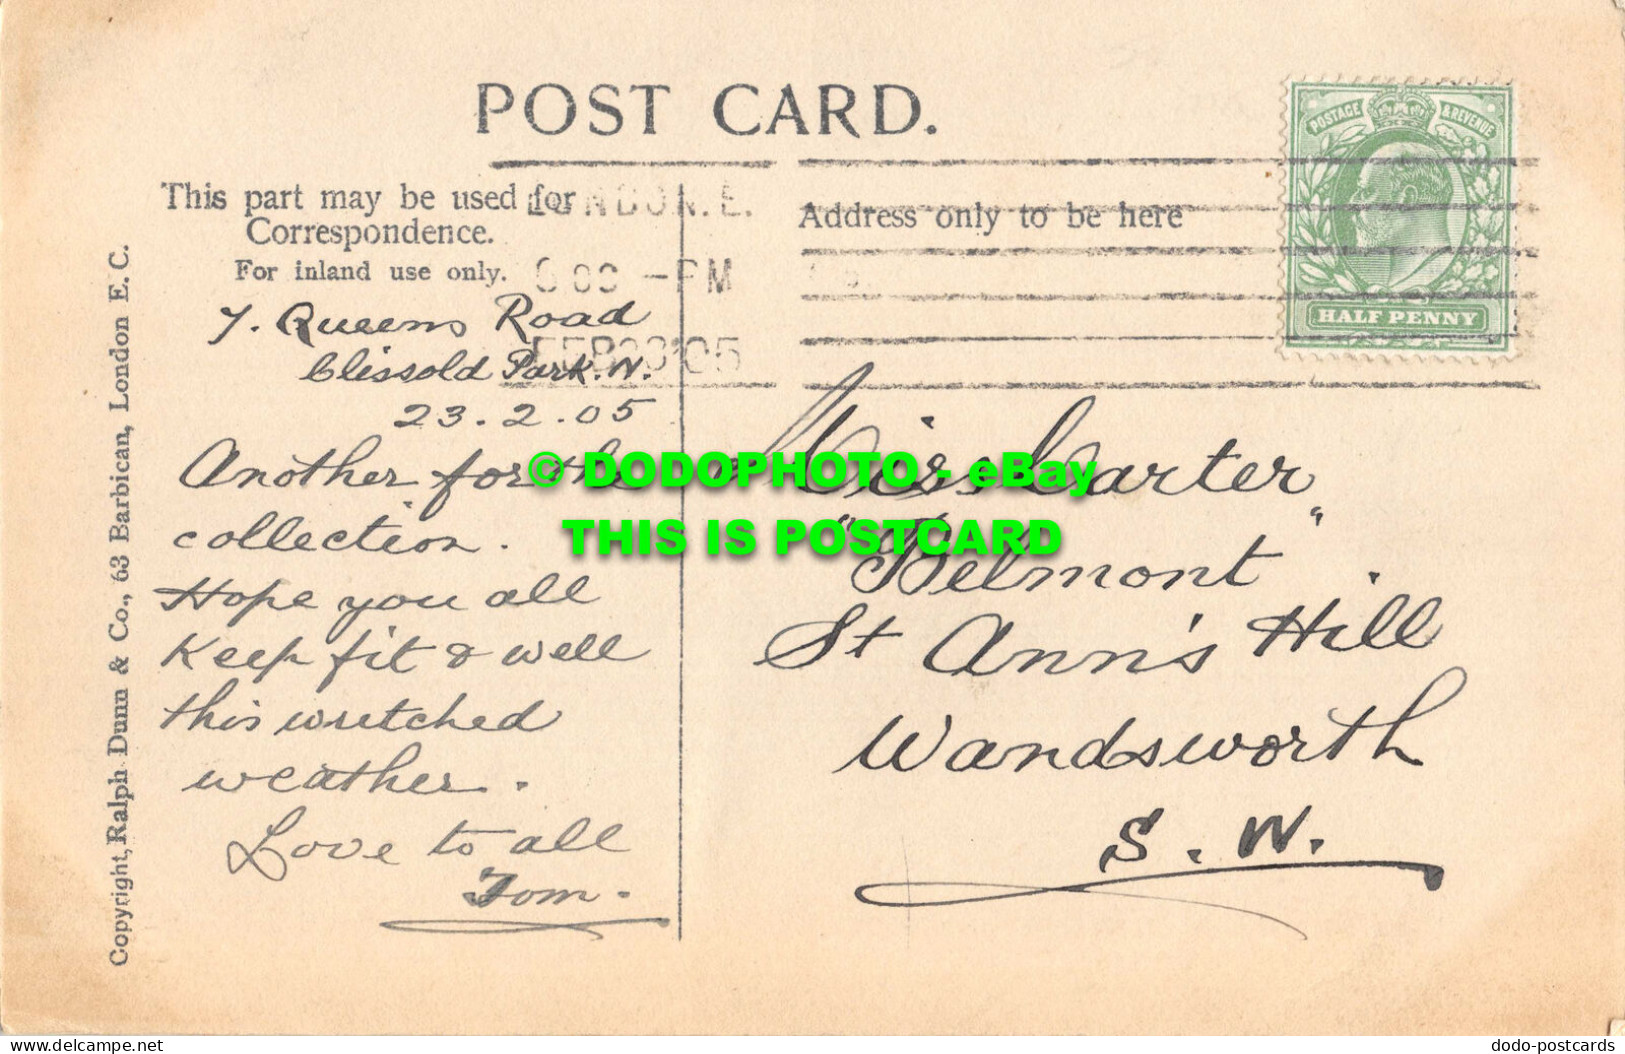 POST CARD.
This part may be used for
Correspondence.
For inland use only.
LONDON. E.
PM
FEB 23 05
Address only to be here
POSTAGE & REVENUE
HALF PENNY
7. Queens Road
Clissold Park. N.
23.2.05
Another for the
collection.
Hope you all
Keep fit & well
this wretched
weather.
Love to all
Tom.
Miss Carter
"Belmont"
St Ann's Hill
Wandsworth
S.W.
Copyright, Ralph Dunn & Co., 63 Barbican, London E. C.
© DODOPHOTO - eBay
THIS IS POSTCARD
www.delcampe.net
dodo-postcards